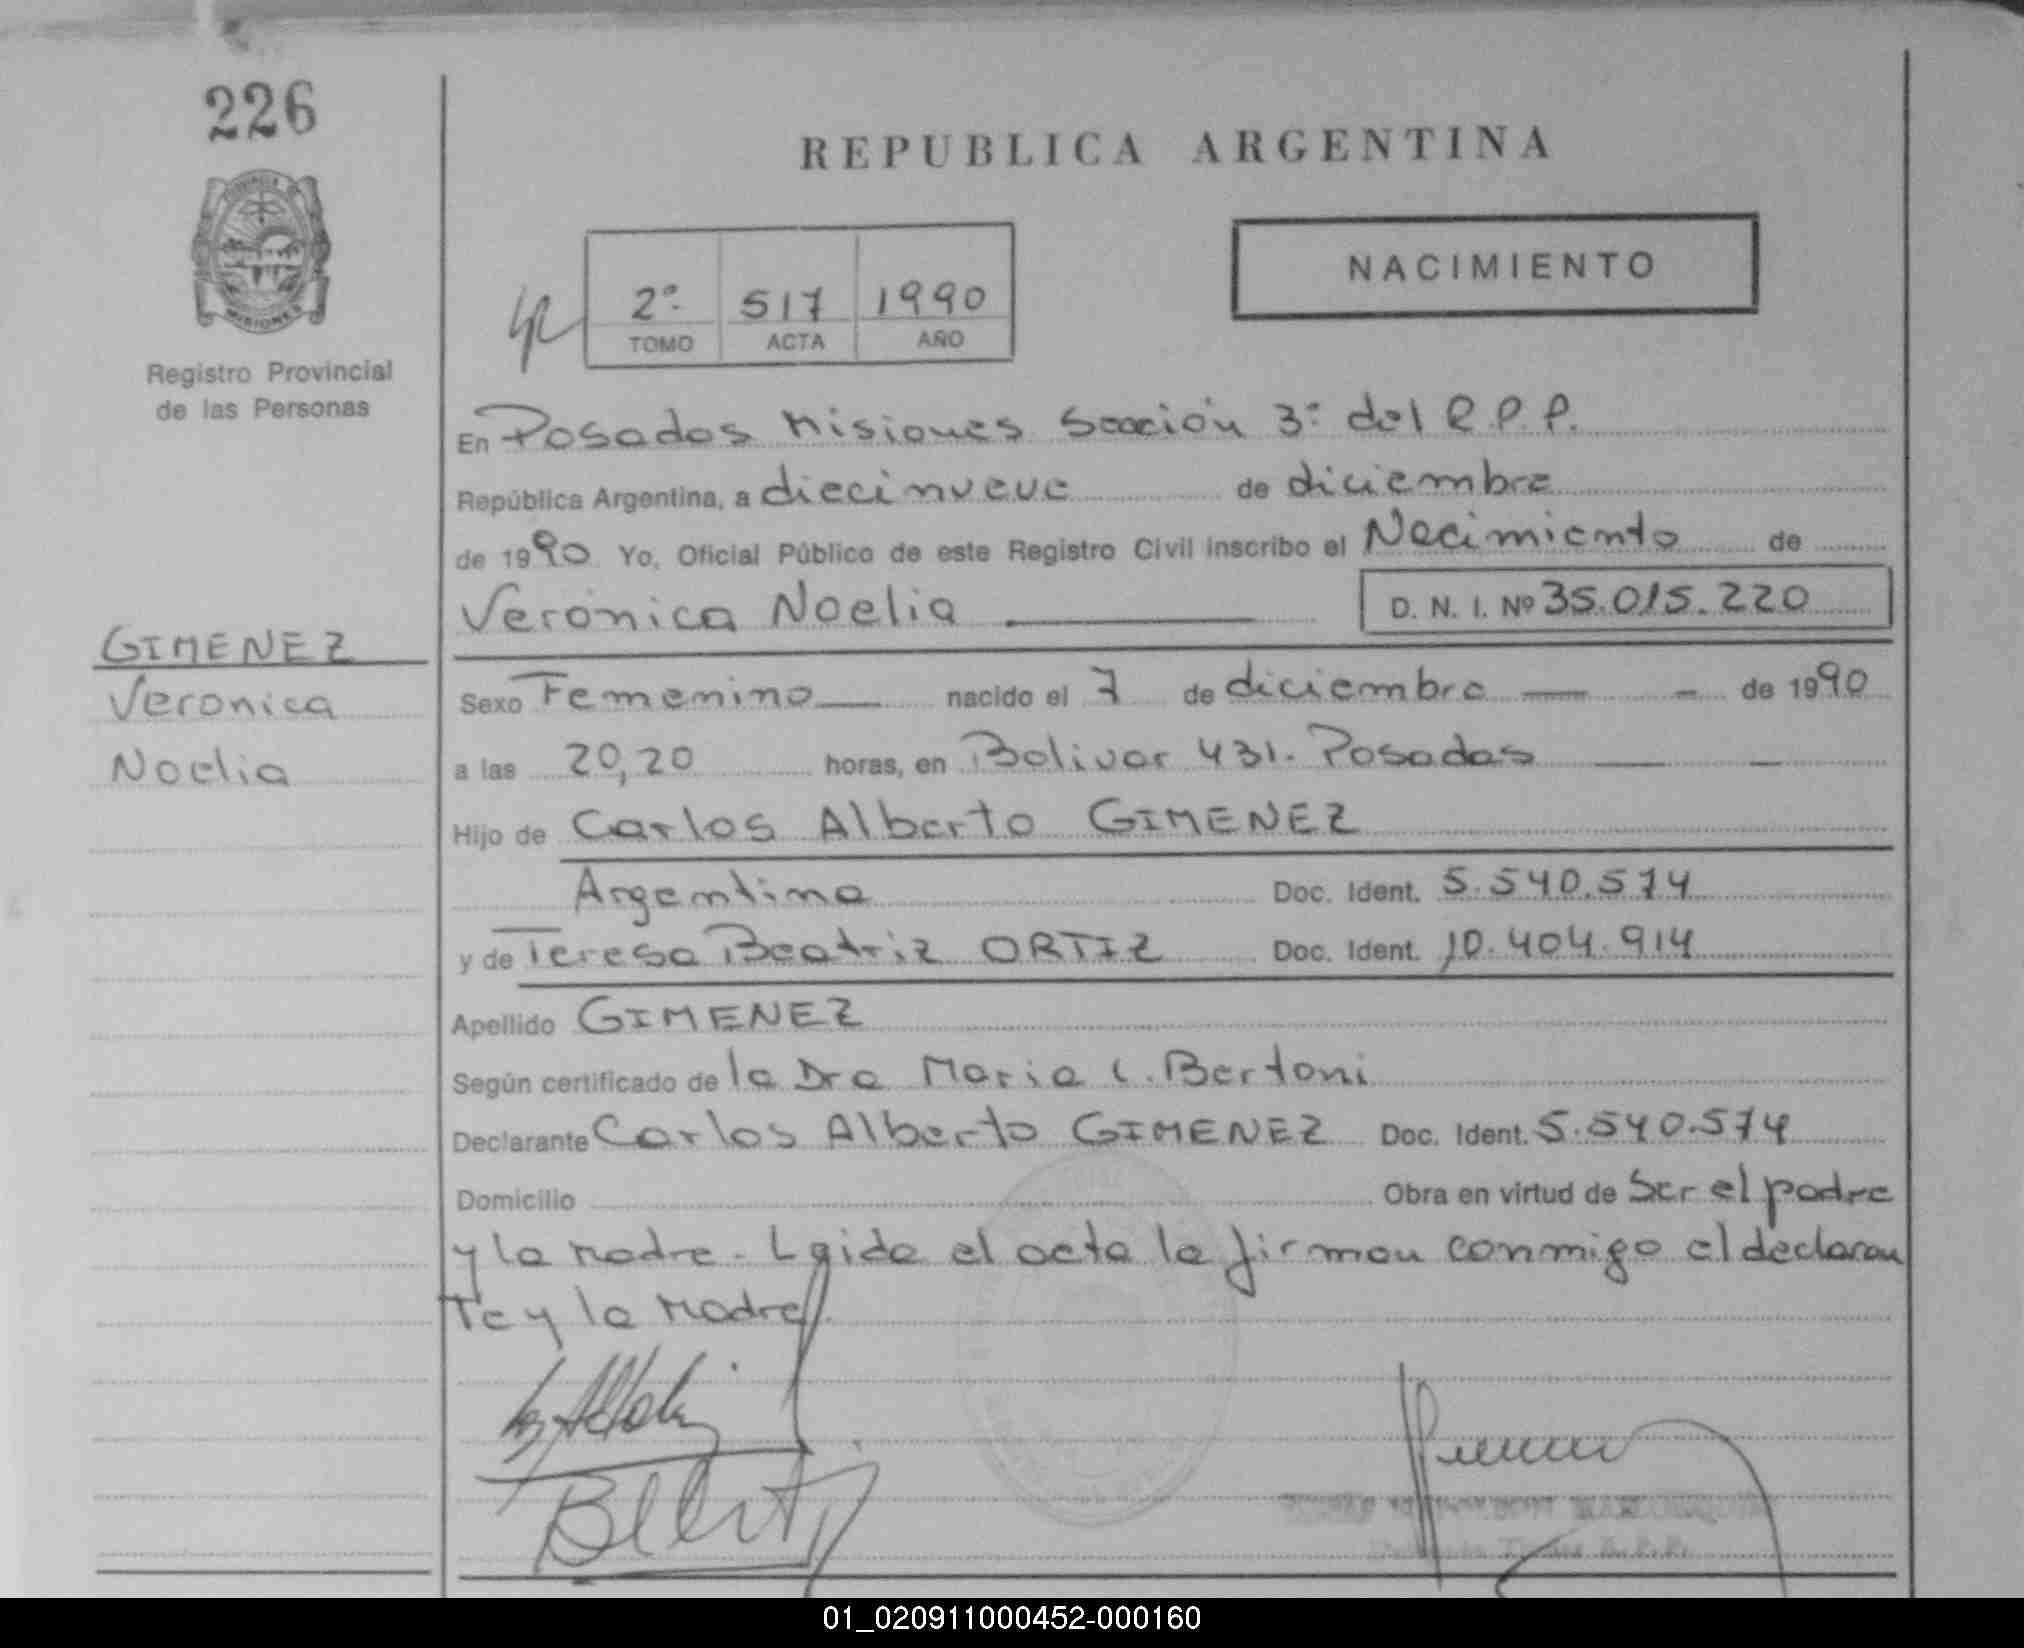 226
REPUBLICA ARGENTINA
MISIONES
Registro Provincial
de las Personas
NACIMIENTO
2º 517 1990
TOMO ACTA AÑO
En Posadas Misiones Sección 3º del R.P.P.
República Argentina, a diecinueve de diciembre
de 1990 Yo, Oficial Público de este Registro Civil inscribo el Nacimiento de
Verónica Noelia D. N. I. Nº 35.015.220
GIMENEZ
Veronica
Noelia
Sexo Femenino nacido el 7 de diciembre de 1990
a las 20,20 horas, en Bolivar 431. Posadas
Hijo de Carlos Alberto GIMENEZ
Argentina Doc. Ident. 5.540.574
y de Teresa Beatriz ORTIZ Doc. Ident. 10.404.914
Apellido GIMENEZ
Según certificado de la Dra Maria C. Bertoni
Declarante Carlos Alberto GIMENEZ Doc. Ident. 5.540.574
Domicilio Obra en virtud de Ser el padre
y la Madre - Leida el acta la firman conmigo el declaran
te y la Madre.
R.P.P.
01_020911000452-000160